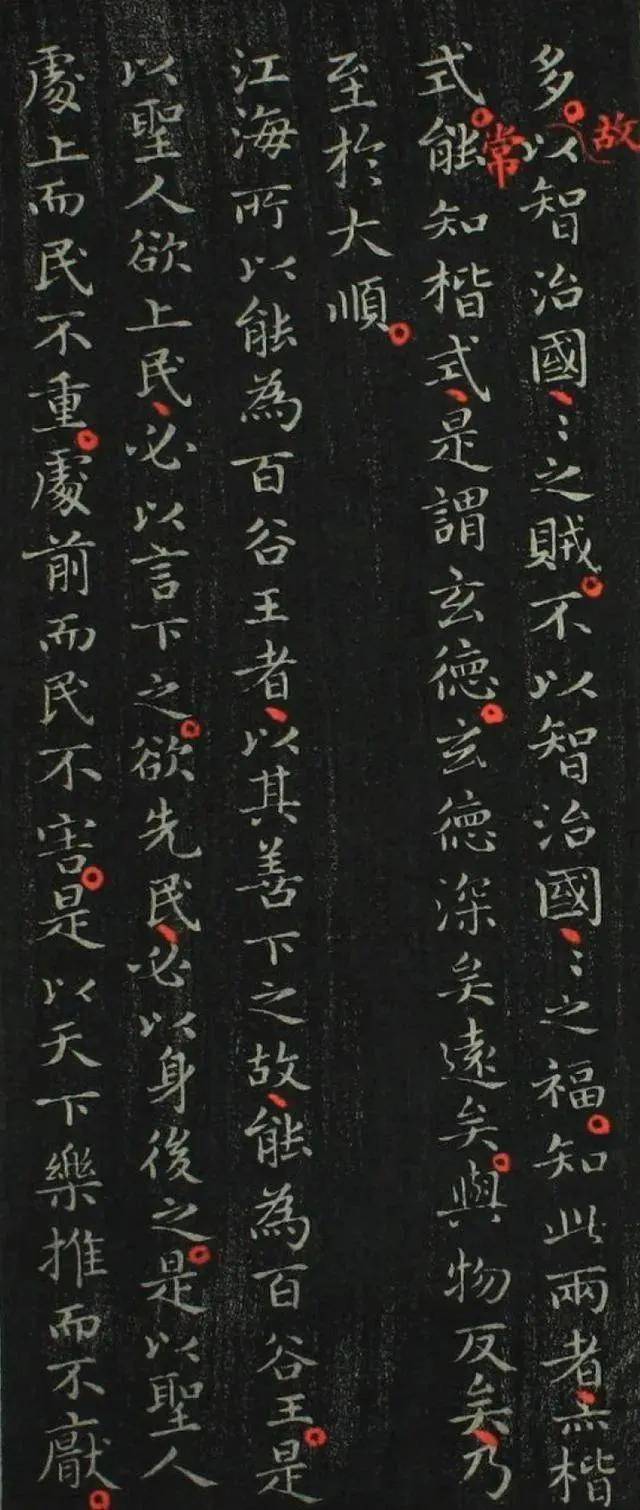 多以智治國〻之賊不以智治國〻之福知此兩者亦楷
式能知楷式是謂玄德玄德深矣遠矣與物反矣乃
至於大順
江海所以能為百谷王者以其善下之故能為百谷王是
以聖人欲上民必以言下之欲先民必以身後之是以聖人
處上而民不重處前而民不害是以天下樂推而不厭
故
常